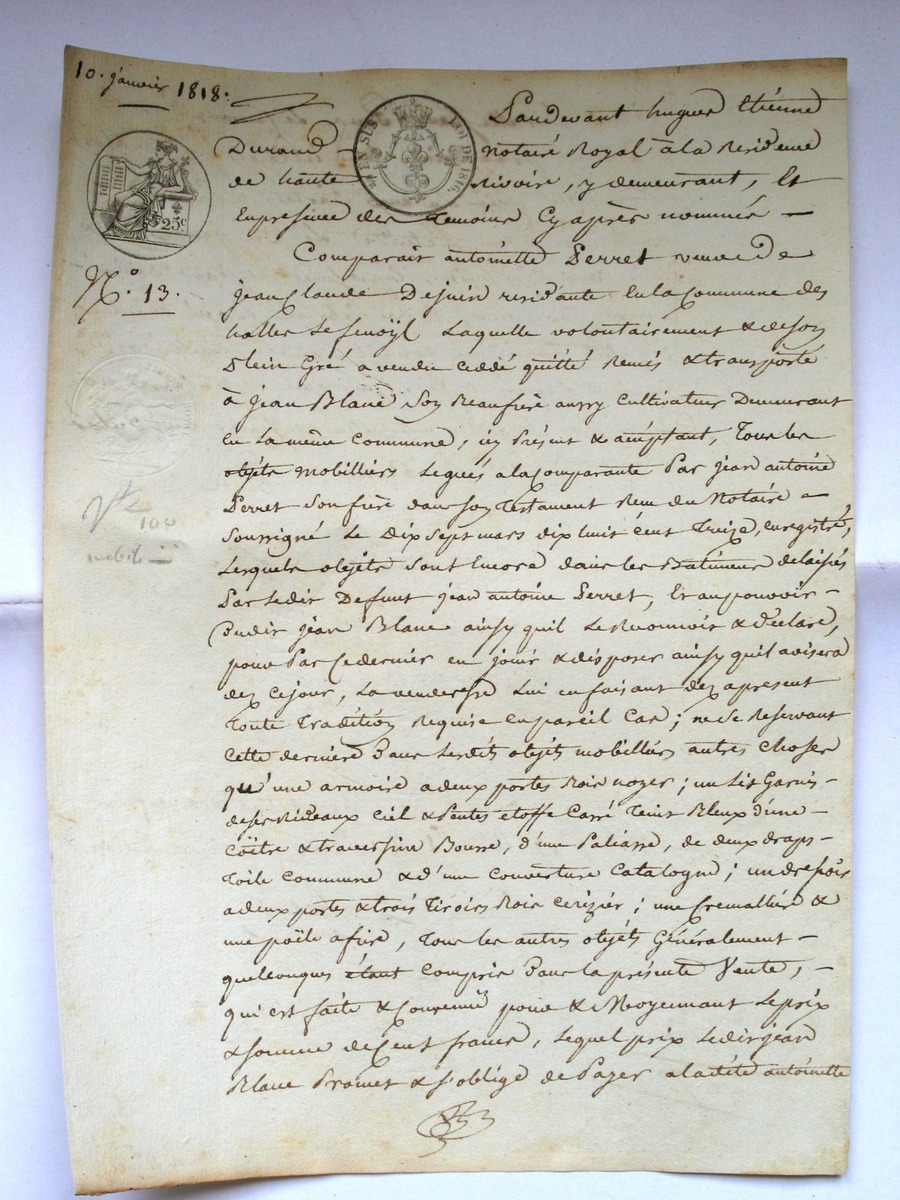 10. janvier 1818.
Pardevant hugues Etienne
Durand - notaire Royal à la Residence
EN SUS LOI DE 1816.
de haute Rivoire, y demeurant, Et
25c
En presence des Temoins Cy après nommés -
Comparait antoinette Perret veuve De
N.° 13.
jean Claude Dejuin residante En la Commune des
halles Le fenoÿl Laquelle volontairement & de son
Plein Gré a vendu ceddé quitté Remis & transporté
à jean Blanc Son Beaufrere aussy Cultivateur Demeurant
En La même Commune, icy Présent & acceptant, Tous les
objets mobilliers Legués a la Comparante Par jean antoine
Perret Son frere dans son Testament Reçu du Notaire -
100
Soussigné Le dix Sept mars dix huit cent Treize, Enregistré,
Lesquels objets Sont Encore dans les Batimens delaissés
Par Ledit Defunt jean antoine Perret, Et au pouvoir -
Dudit jean Blanc ainsy quil Le Reconnoit & declare,
pour Par Ce dernier en jouir & disposer ainsy quil avisera
dez ce jour, La venderesse Lui en faisant dez apresent
Toute Tradition Requise En pareil Cas ; ne Se Reservant
Cette derniere Dans Lesdits objets mobilliers autres Choses
qu'une armoire a deux portes Bois noyer ; un Lit Garni -
de Ses Rideaux Ciel & Pentes etoffe Carré Teint Bleux d'une -
Coitre & traversin Bourre, d'une Paliasse, de deux draps -
Toile Commune & d'une Couverture Catalogne ; un
a deux portes & trois Tiroirs Bois Cerizier ; une Cremallière &
une poële a frire, Tous les autres objets Généralement -
quelconques étant Compris Dans la présente Vente, -
qui est faite & Convenue pour & Moyennant Le prix
& Somme de Cent francs, Lequel prix Ledit jean
Blanc Promet & S'oblige de Payer a ladite antoinette